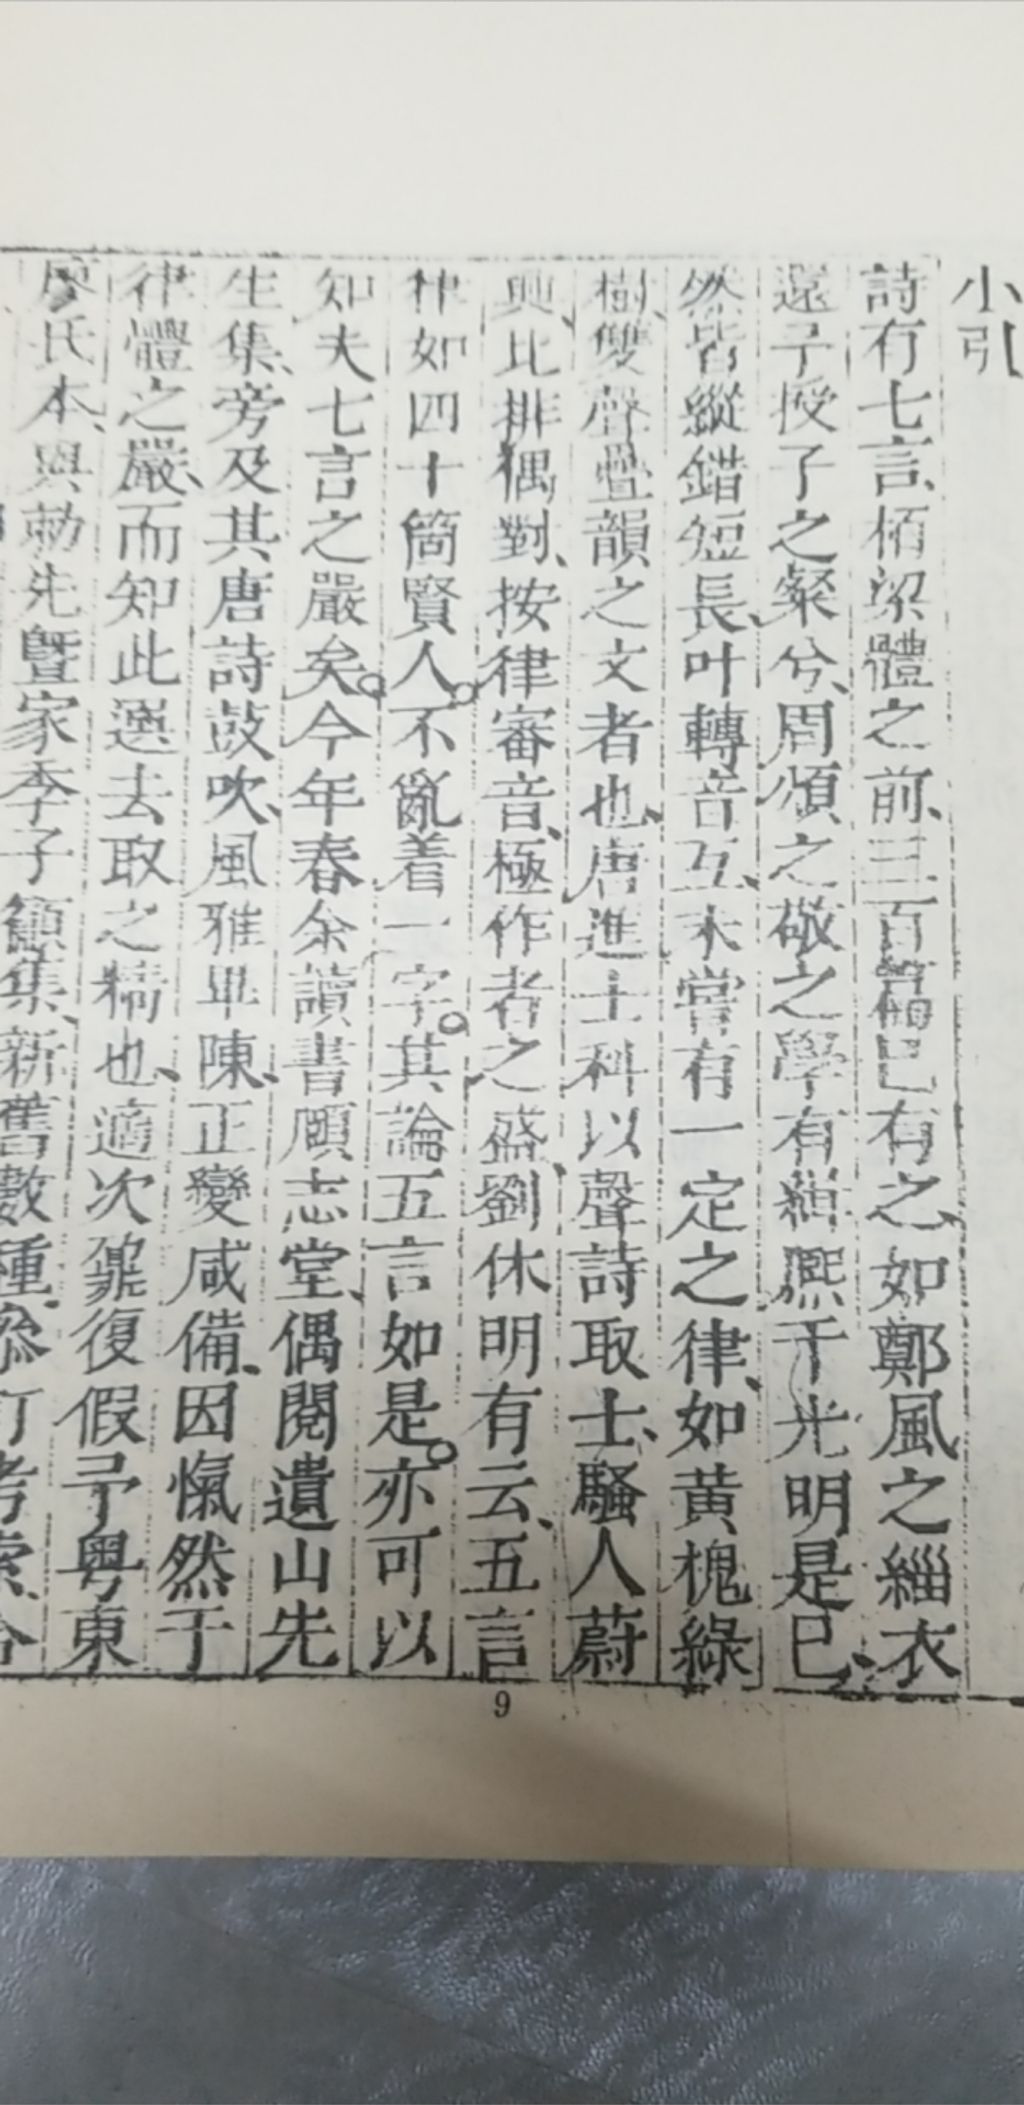 小引
詩有七言、栢梁體之前、三百篇已有之、如鄭風之緇衣
還予授子之粲兮、周頌之敬之學有緝熙于光明是已、
然皆縱錯短長、叶轉音互、未嘗有一定之律、如黃槐綠
樹、雙聲疊韻之文者也、唐進士科以聲詩取士、騷人蔚
興、比排偶對、按律審音、極作者之盛、劉休明有云、五言
律如四十箇賢人。不亂着一字。其論五言如是。亦可以
知夫七言之嚴矣。今年春余讀書頤志堂、偶閱遺山先
生集、旁及其唐詩鼓吹、風雅畢陳、正變咸備、因愾然于
律體之嚴、而知此選去取之精也、適次鼐復假予粤東
廖氏本、與勅先曁家季子籲集、新舊數種、叅訂考索、合
9